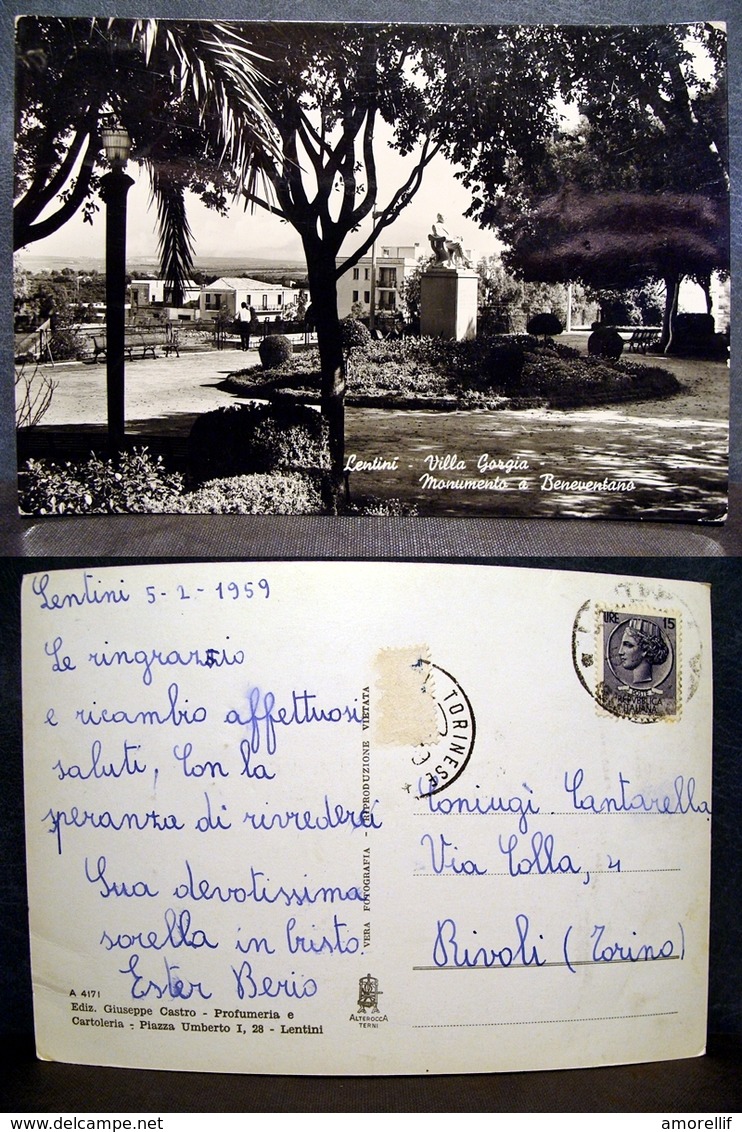 Lentini - Villa Gorgia -
Monumento a Beneventano
Lentini 5-2-1959
Le ringrazio
e ricambio affettuosi
saluti, Con la
speranza di rivederci
Sua devotissima
sorella in Cristo.
Ester Berio
A 4171
Ediz. Giuseppe Castro - Profumeria e
Cartoleria - Piazza Umberto I, 28 - Lentini
VERA FOTOGRAFIA - RIPRODUZIONE VIETATA
ALTEROCCA
TERNI
TORINESE
LIRE 15
POSTE
REPVBBLICA
ITALIANA
Coniugi Cantarella
Via Colla, 4
Rivoli (Torino)
amorellif
www.delcampe.net